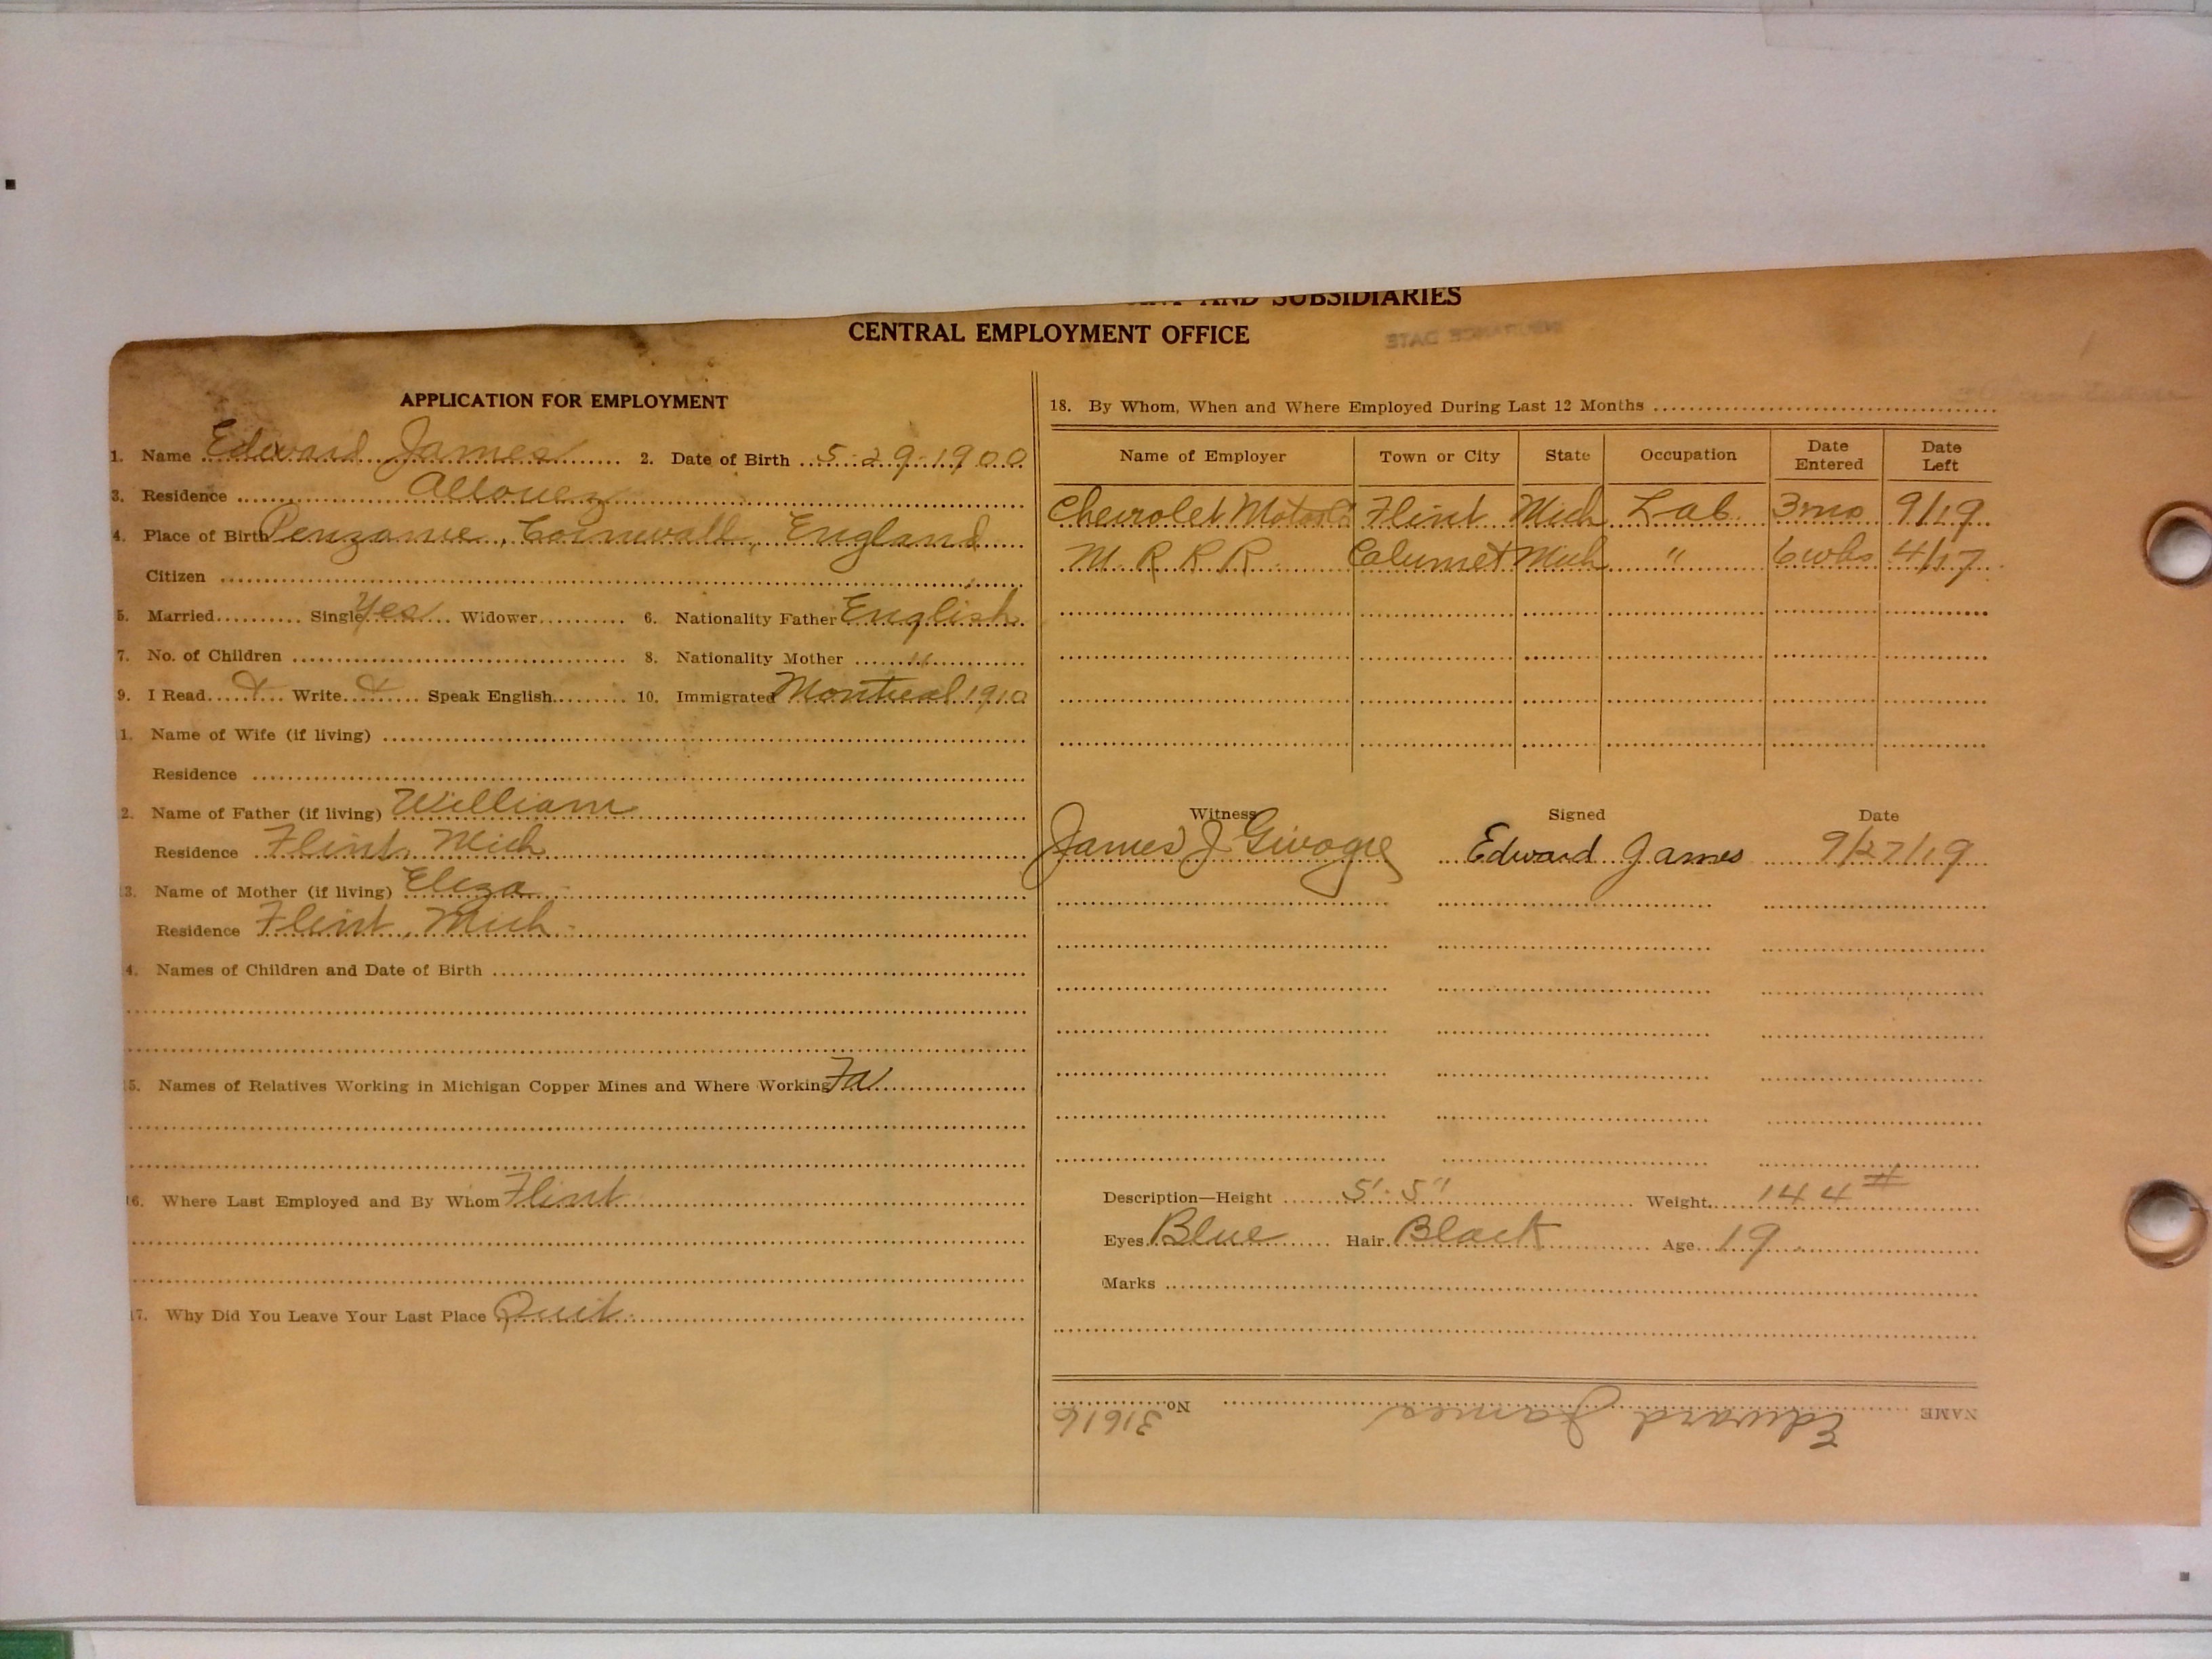 AND SUBSIDIARIES
CENTRAL EMPLOYMENT OFFICE
APPLICATION FOR EMPLOYMENT
1. Name Edward James 2. Date of Birth 5-29-1900
3. Residence Allouez
4. Place of Birth Penzance, Cornwall, England
Citizen
5. Married Single Yes Widower 6. Nationality Father English
7. No. of Children 8. Nationality Mother "
9. I Read Write Speak English 10. Immigrated Montreal 1910
1. Name of Wife (if living)
Residence
2. Name of Father (if living) William
Residence Flint, Mich
3. Name of Mother (if living) Eliza
Residence Flint, Mich
4. Names of Children and Date of Birth
5. Names of Relatives Working in Michigan Copper Mines and Where Working Fa
16. Where Last Employed and By Whom Flint
17. Why Did You Leave Your Last Place Quit
18. By Whom, When and Where Employed During Last 12 Months
Name of Employer Town or City State Occupation Date Entered Date Left
Chevrolet Motor Flint Mich Lab. 3 mo 9/19
M. R R R Calumet Mich " 6 wks 4/17
Witness Signed Date
James J Edward James 9/27/19
Description—Height 5' 5" Weight 144#
Eyes Blue Hair Black Age 19
Marks
NAME Edward James No. 31616